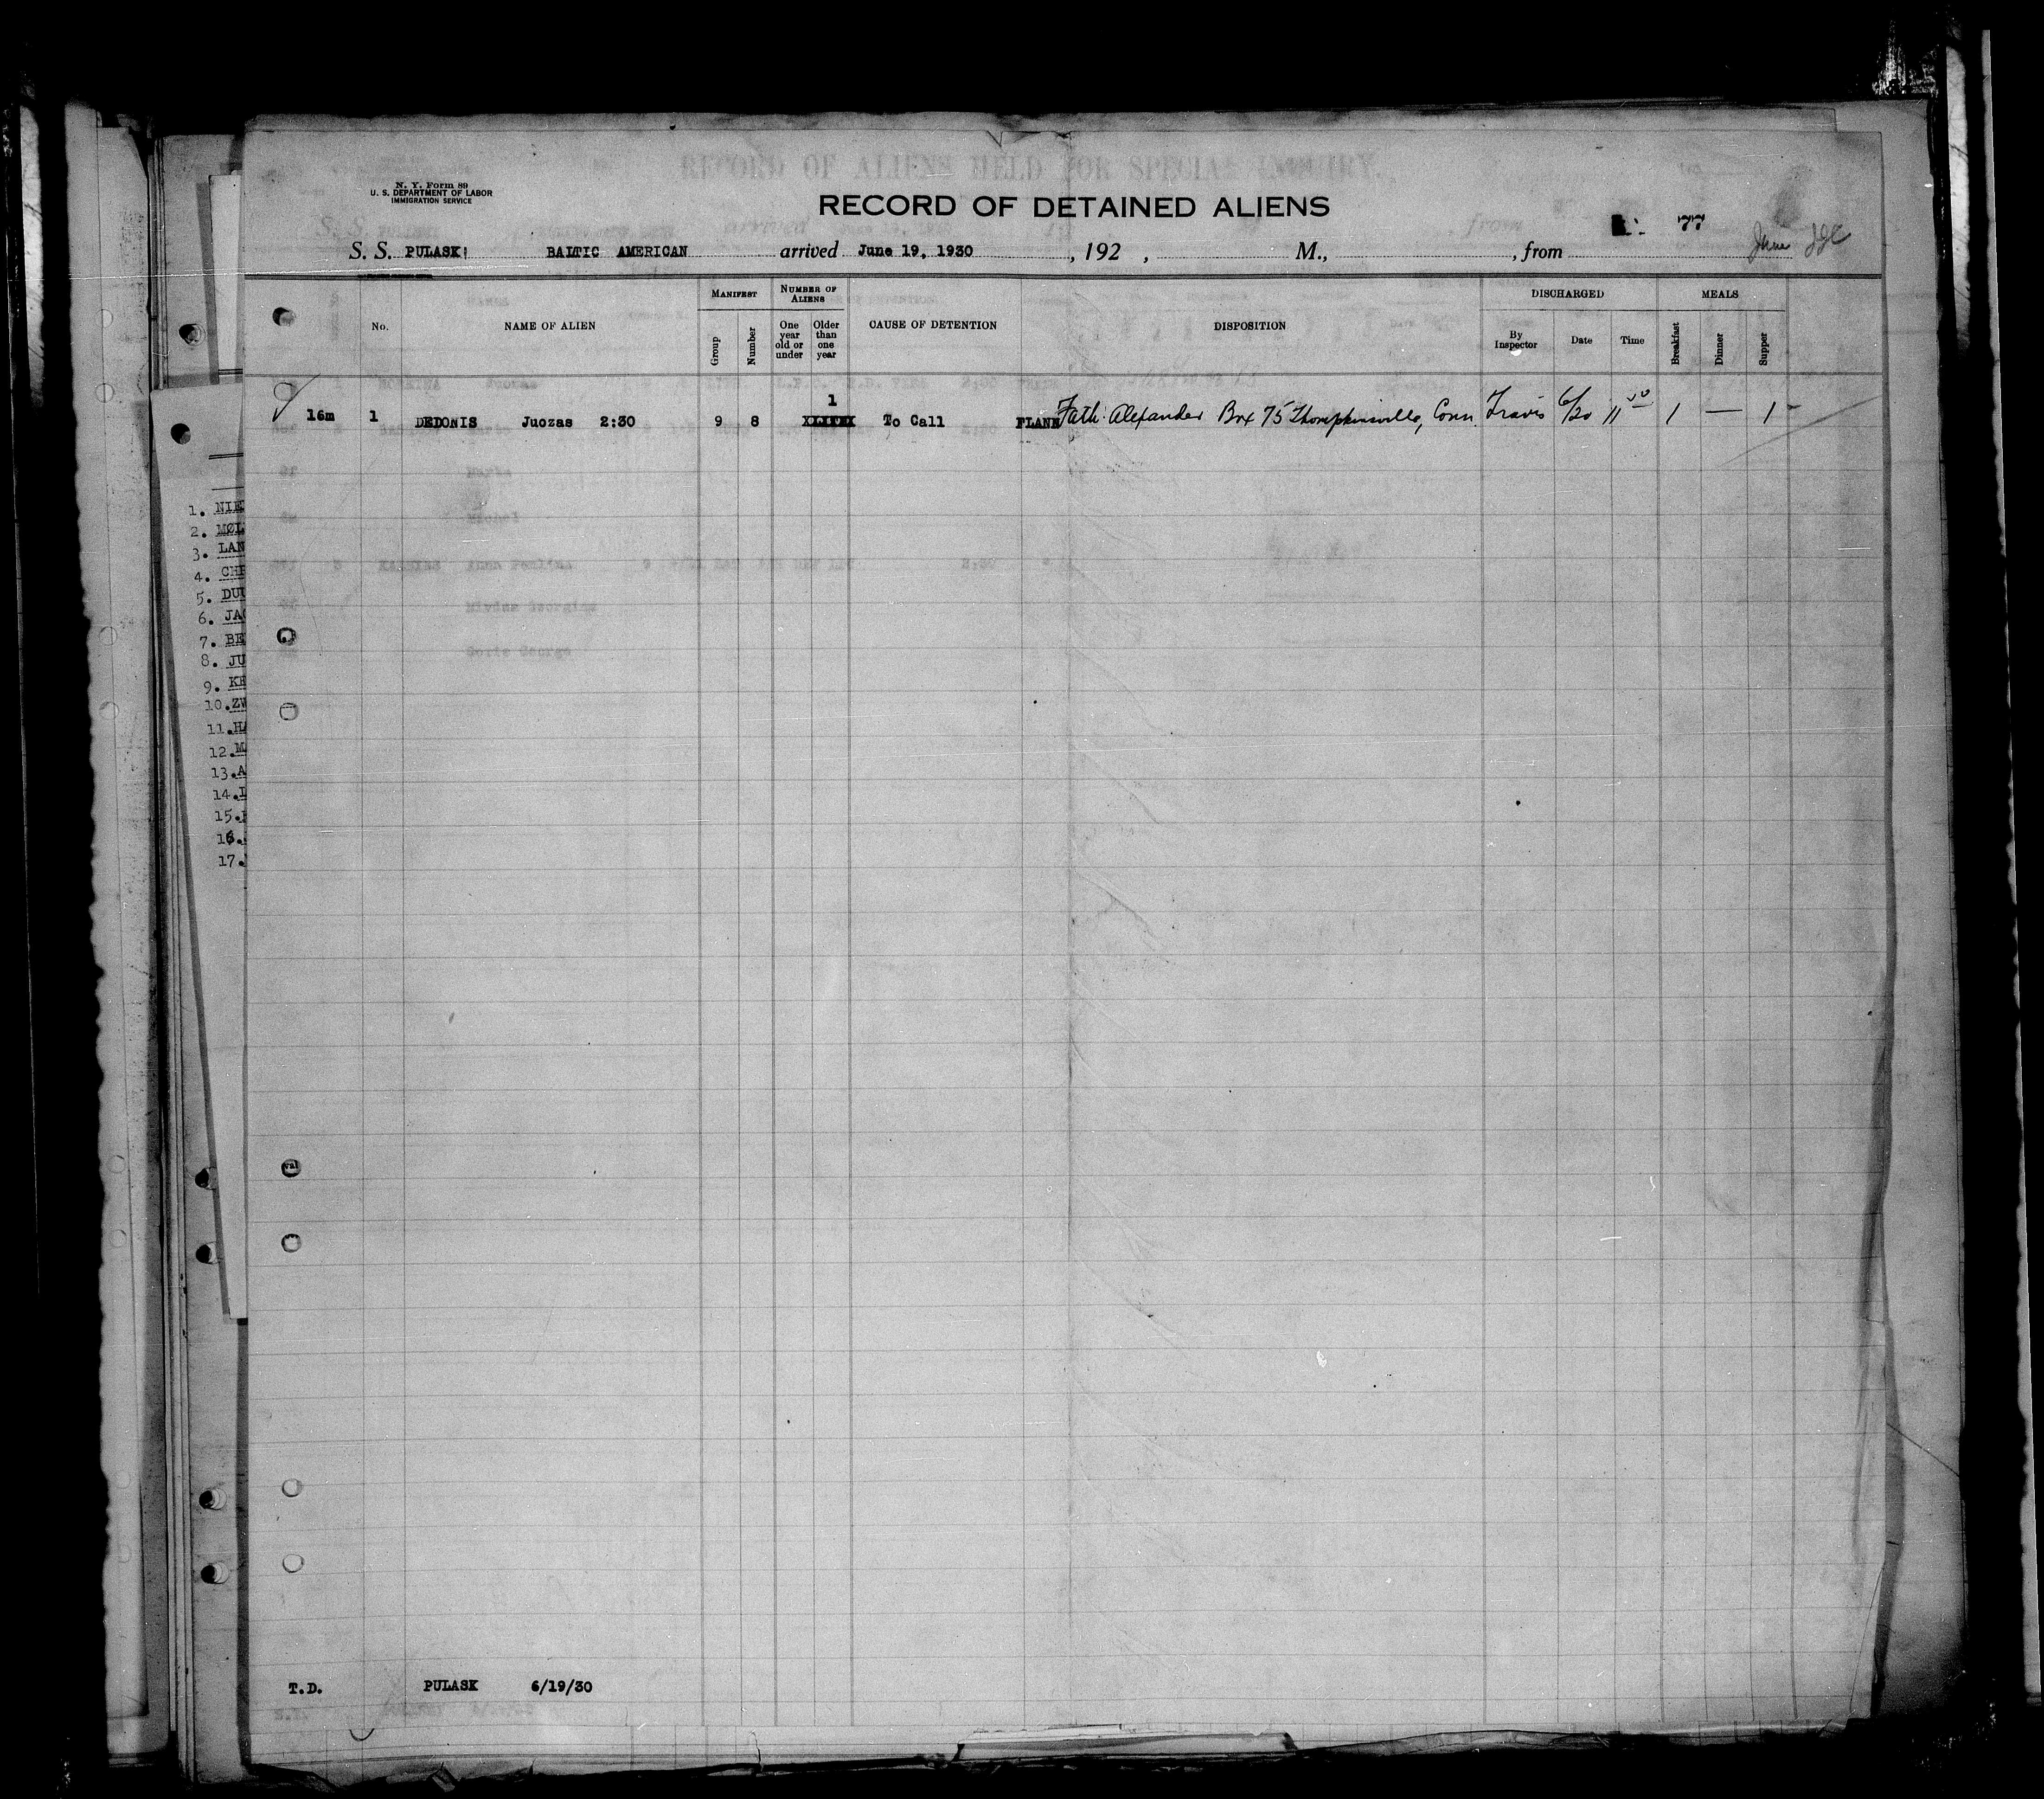 RECORD OF ALIENS HELD FOR SPECIAL INQUIRY.
N. Y. Form 89
U. S. DEPARTMENT OF LABOR
IMMIGRATION SERVICE
RECORD OF DETAINED ALIENS
77
S. S. PULASKI BALTIC AMERICAN arrived June 19, 1930, 192 , M., , from June
No. NAME OF ALIEN MANIFEST Group Number NUMBER OF ALIENS One year old or under Older than one year CAUSE OF DETENTION DISPOSITION DISCHARGED By Inspector Date Time MEALS Breakfast Dinner Supper
1
16m 1 DEDONIS Juozas 2:30 9 8 To Call PLANK Fath. Alexander Box 75 Thompkinsville, Conn. Travis 6/20 11 00 1 — 1
1. NIE
2. MØL
3. LAN
4. CHR
5. DUU
6. JAC
7. BE
8. JU
9. KE
10. ZW
11. HA
12. MA
13. A
14.
15.
16.
17.
T.D. PULASK 6/19/30